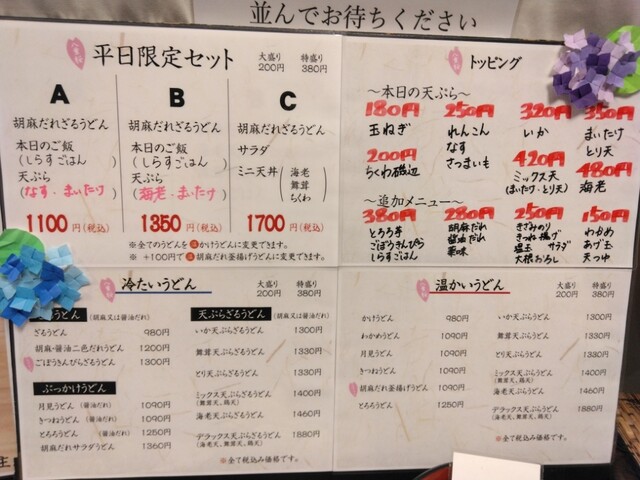 並んでお待ちください
平日限定セット
大盛り 200円
特盛り 380円
A
胡麻だれざるうどん
本日のご飯
(しらすごはん)
天ぷら
(なす・まいたけ)
1100円(税込)
B
胡麻だれざるうどん
本日のご飯
(しらすごはん)
天ぷら
(海老・まいたけ)
1350円(税込)
C
胡麻だれざるうどん
サラダ
ミニ天丼(海老 舞茸 ちくわ)
1700円(税込)
※全てのうどんを温かけうどんに変更できます。
※ +100円で温胡麻だれ釜揚げうどんに変更できます。
トッピング
～本日の天ぷら～
180円
玉ねぎ
200円
ちくわ磯辺
250円
れんこん
なす
さつまいも
320円
いか
420円
ミックス天
(まいたけ・とり天)
350円
まいたけ
とり天
480円
海老
～追加メニュー～
380円
とろろ芋
ごぼうきんぴら
しらすごはん
280円
胡麻だれ
醤油だれ
薬味
250円
きざみのり
きつね揚げ
温玉 サラダ
大根おろし
150円
わかめ
あげ玉
天つゆ
冷たいうどん
大盛り 200円
特盛り 380円
うどん (胡麻又は醤油だれ)
ざるうどん 980円
胡麻・醤油二色だれうどん 1200円
ごぼうきんぴらざるうどん 1300円
ぶっかけうどん
月見うどん (醤油だれ) 1090円
きつねうどん (醤油だれ) 1090円
とろろうどん (醤油だれ) 1250円
胡麻だれサラダうどん 1360円
天ぷらざるうどん (胡麻又は醤油だれ)
いか天ぷらざるうどん 1300円
舞茸天ぷらざるうどん 1330円
とり天ぷらざるうどん 1330円
ミックス天ぷらざるうどん 1400円
(舞茸天、鶏天)
海老天ぷらざるうどん 1460円
デラックス天ぷらざるうどん 1880円
(海老天、舞茸天、鶏天)
※全て税込み価格です。
温かいうどん
大盛り 200円
特盛り 380円
かけうどん 980円
わかめうどん 1090円
月見うどん 1090円
きつねうどん 1090円
胡麻だれ釜揚げうどん 1090円
とろろうどん 1250円
いか天ぷらうどん 1300円
舞茸天ぷらうどん 1330円
とり天ぷらうどん 1330円
ミックス天ぷらうどん 1400円
(舞茸天、鶏天)
海老天ぷらうどん 1460円
デラックス天ぷらうどん 1880円
(海老天、舞茸天、鶏天)
※全て税込み価格です。
主